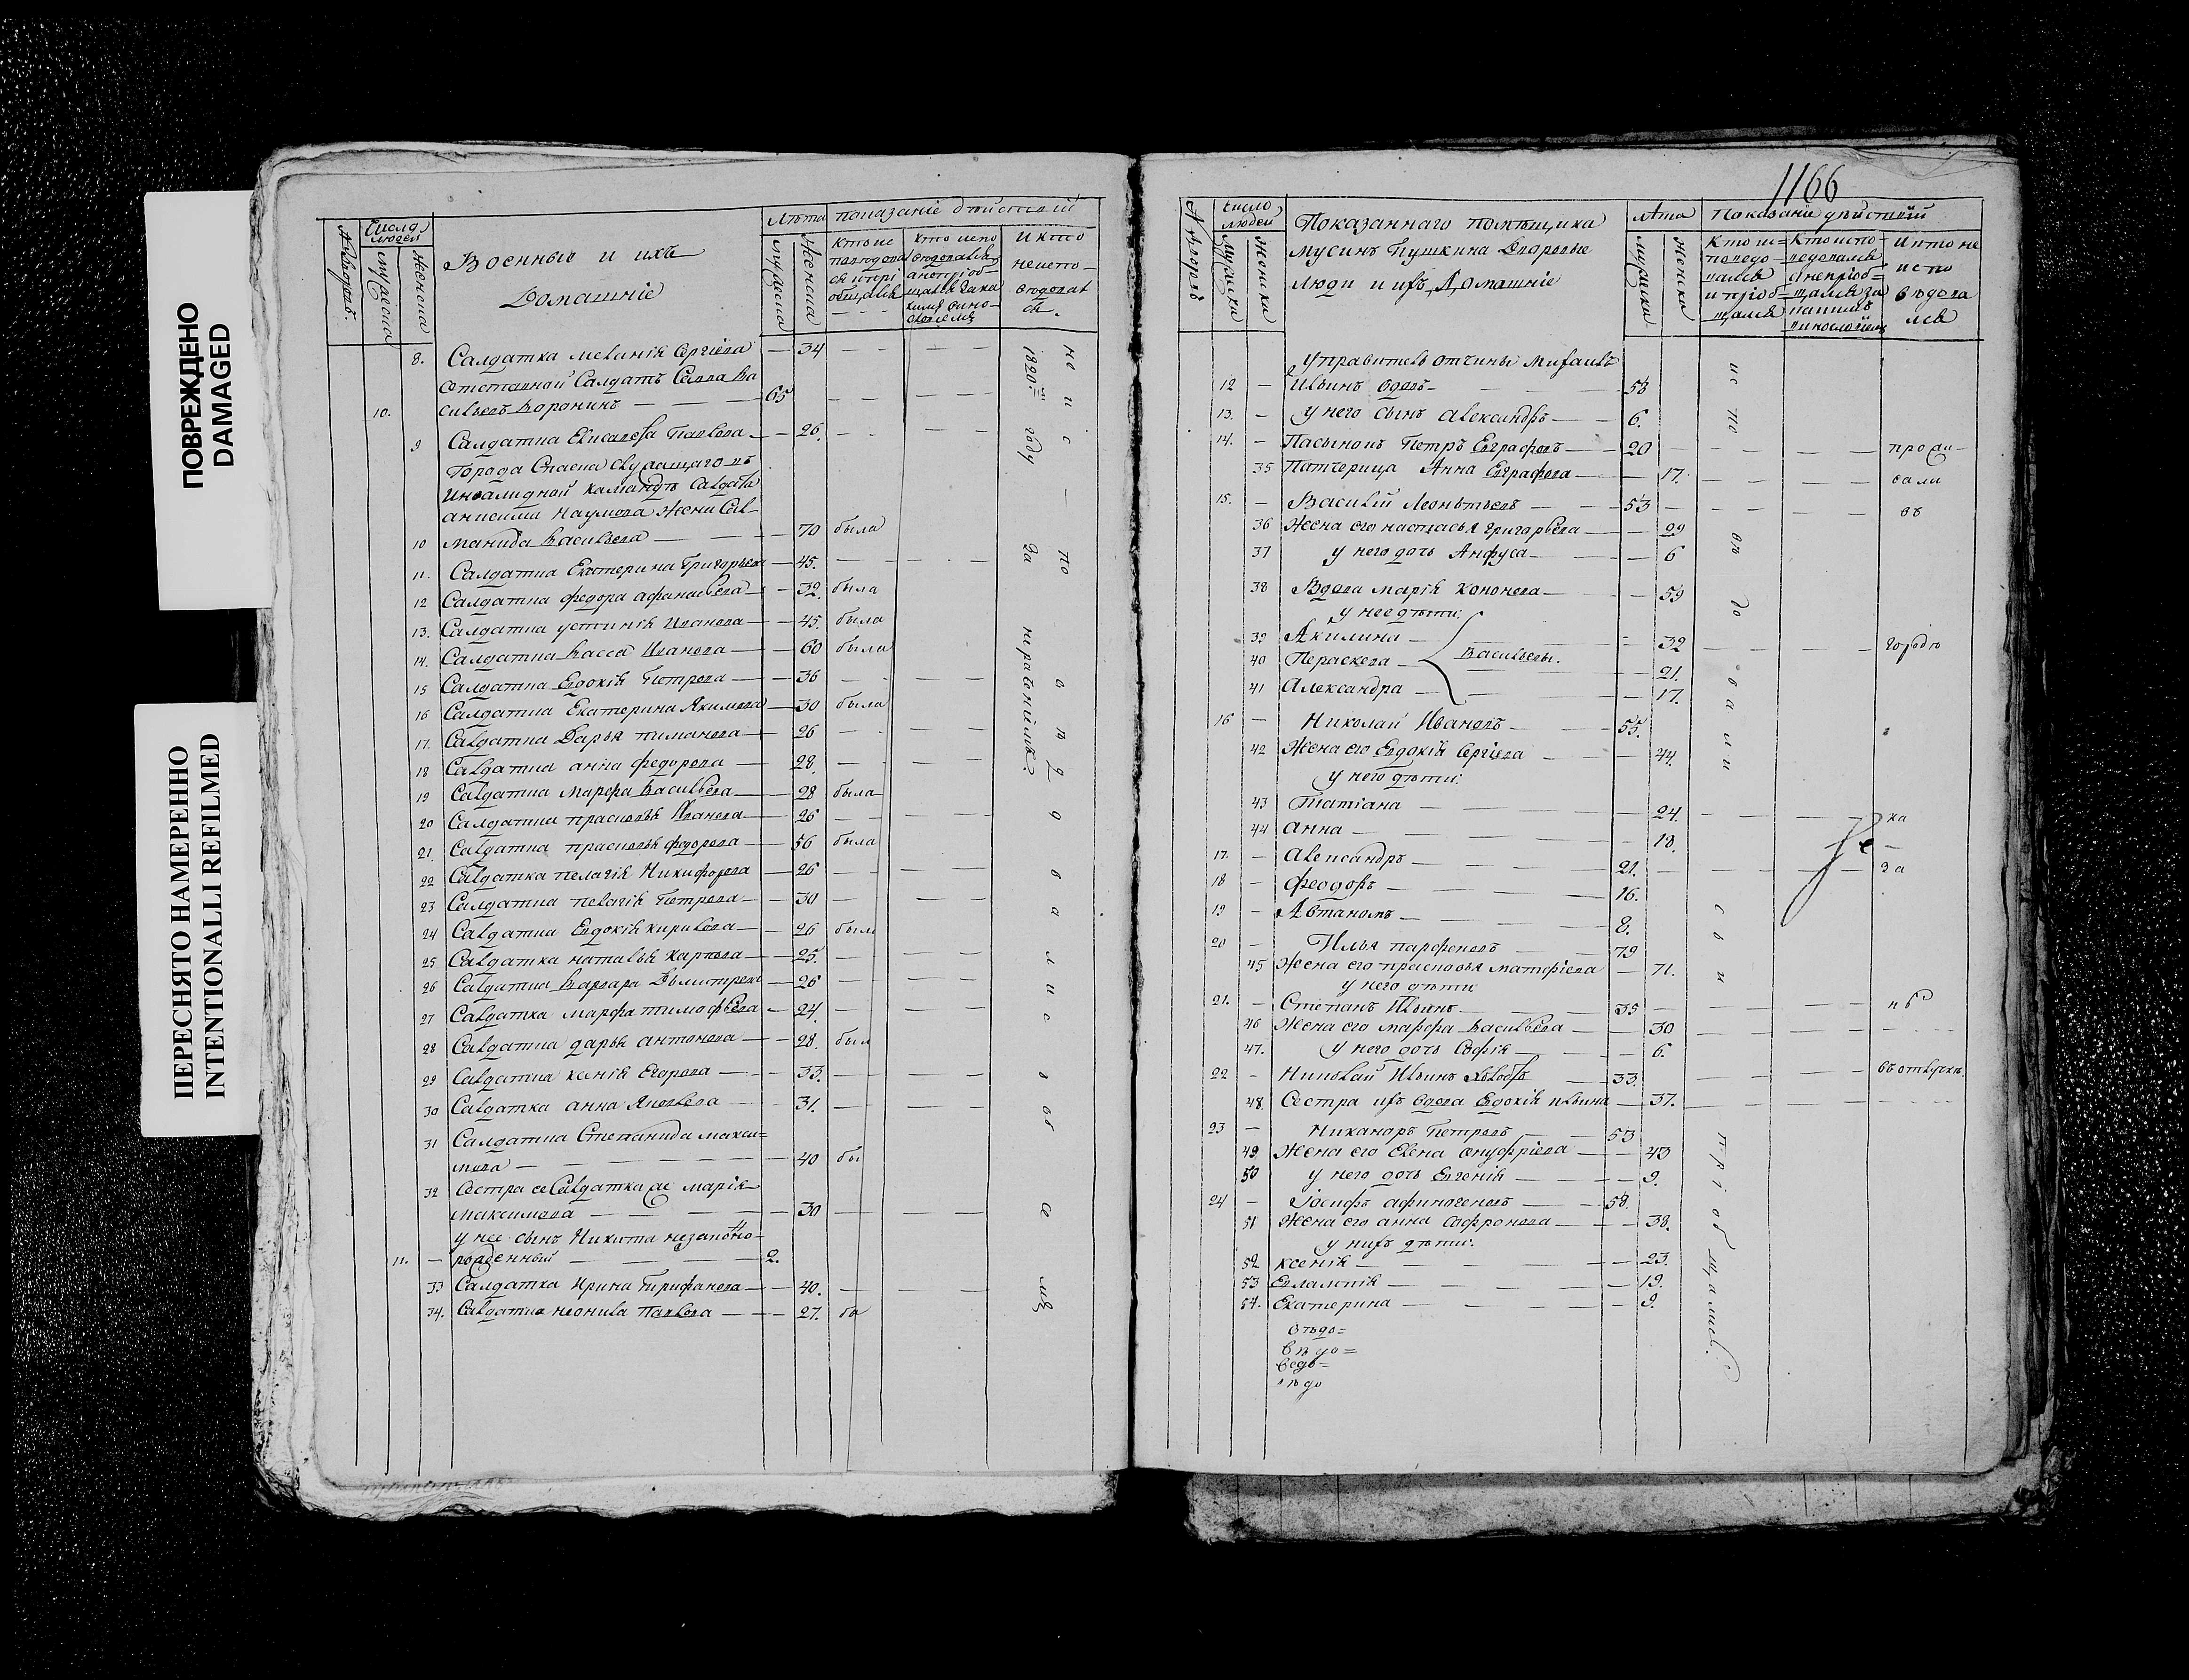 ПОВРЕЖДЕНО
DAMAGED
ПЕРЕСНЯТО НАМЕРЕННО
INTENTIONALLI REFILMED
Число людей
Мужеска
Женска
Военныя и ихъ
Домашніе
Лѣта
Мужеска
Женска
показаніе дѣйствій
8. Салдатка Меланія Сергіева — 34
отставной Салдатъ Савва Ва
10. сильевъ Воронинъ — 65
9 Салдатка Елисавеfа Павлова — 26.
города Спаска служащаго въ
Инвалидной камандѣ Салдата
анисима Наумова жена Сал-
10 манида Васильева — 70 была
11. Салдатка Екатерина Григорьева — 45.
12 Салдатка федора афанасьева — 32. была
13. Салдатка устинія Иванова — 45. была
14. Салдатка Васса Иванова — 60 была
15 Салдатка Евдокія Петрова — 36
16 Салдатка Екатерина Якимова — 30 была
17. Салдатка Дарья пиманова — 26
18 Салдатка анна федорова — 28.
19 Салдатка Марфа Васильева — 28 была
20 Салдатка прасковья Иванова — 26
21. Салдатка прасковья федорова — 56 была
22 Салдатка пелагія Никифорова — 26
23 Салдатка пелагія Петрова — 30
24 Салдатка Евдокія кирилова — 26 был
25 Салдатка наталья Карпова — 25.
26 Салдатка Варвара Дьмитрева — 26
27 Салдатка Марфа тимофѣева — 24.
28 Салдатка дарья антонова — 28. был
29 Салдатка ксенія Егорова — 33.
30 Салдатка анна Яковлева — 31.
31 Салдатка Степанида макси=
мова — 40 бы
32 Сестра ее Салдатка же марія
максимова — 30
у нее сынъ Никита незаконо-
11. рожденный — 2.
33 Салдатка Ирина Трифанова — 40.
34. Салдатка неонила Павлова — 27. бы
1820-м году за нерачениiмъ
не исповѣдовалися
1166
число людей
Мужеска
Женска
Показаннаго помѣщика
Мусинъ Пушкина Дворовые
люди и ихъ Домашніе
лѣта
Мужеска
Женска
Показаніе дѣйствій
Управитель отчины Михаилъ
12 — Ильинъ вдовъ — 58
13. — у него сынъ Александръ — 6.
14. — Пасынокъ Петръ Евграфовъ — 20
35 Патчерица Анна Евграфова — 17.
15. — Василій Леонтьевъ — 53
36 Жена его настасья григорьева — 29
37 у него дочь Анфуса — 6
38 Вдова марія кононова — 59
у нее дѣти:
39 Акилина — 32
40 Параскева — Васильевы. 21.
41 Александра — 17.
16 — Николай Ивановъ — 55.
42 Жена его Евдокія Сергіева — 44.
у него дѣти:
43 Татіана — 24.
44 анна — 18.
17. — Александръ — 21.
18 — Феодоръ — 16.
19 — Автаномъ — 8.
20 — Илья парфеновъ — 79
45 Жена его прасковья матфіева — 71.
у него дѣти
21. — Степанъ Ильинъ — 35
46 Жена его марфа Васильева — 30
47. у него дочь Софія — 6.
22 — Николай Ильинъ холостъ — 33. въ отлучкѣ
48. Сестра ихъ вдова Евдокія ильина — 37.
23 — Никаноръ Петровъ — 53
49. Жена его Елена ануфріева — 43
50 у него дочь Евгенія — 9.
24 — Іосифъ афиногеновъ — 58.
51 Жена его анна Софронова — 38.
у нихъ дѣти:
52 ксенія — 23.
53 Евлампія — 19.
54. Екатерина — 9.